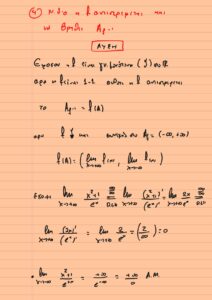 ④ Ν.δ.ο η f αντιστρέφεται και
να βρεθεί A_f⁻¹
ΛΥΣΗ
Έχουμε f είναι γν. φθίνουσα (↓) στο ℝ
άρα η f είναι 1-1 οπότε η f αντιστρέφεται
το A_f⁻¹ = f(A)
άρα f ↓ και συνεχής στο A_f = (-∞, +∞)
f(A) = ( lim_{x→+∞} f(x), lim_{x→-∞} f(x) )
Έχουμε lim_{x→+∞} (x²+1)/e^x = lim_{x→+∞} (x²+1)'/(e^x)' = lim_{x→+∞} 2x/e^x
lim_{x→+∞} (2x)'/(e^x)' = lim_{x→+∞} 2/e^x = (2/∞) = 0
• lim_{x→-∞} (x²+1)/e^x = +∞/e^-∞ = +∞/0